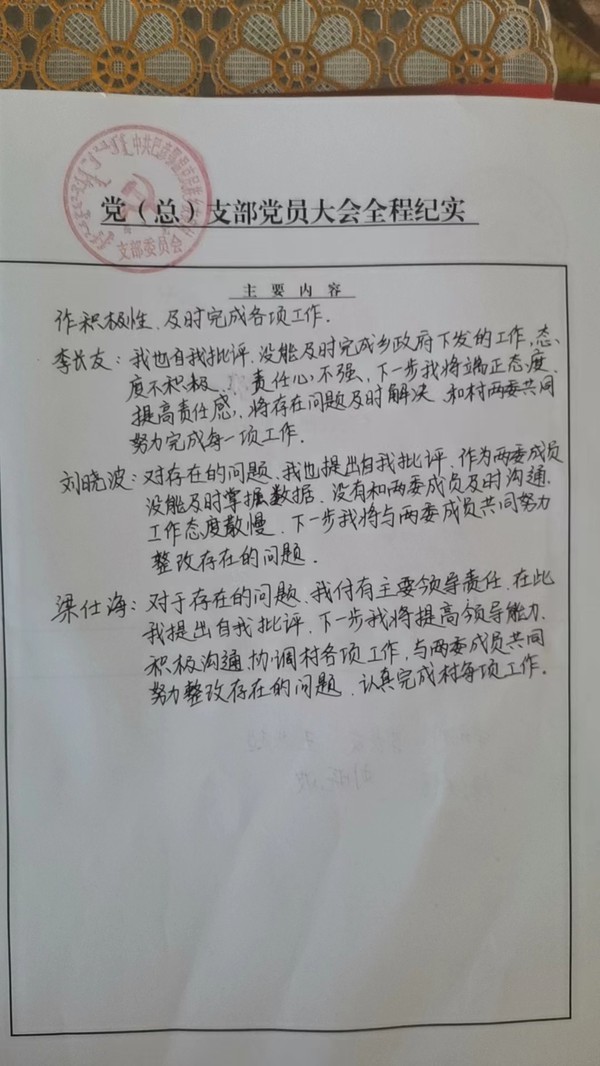 支部委员会
党（总）支部党员大会全程纪实
主要内容
作积极性、及时完成各项工作.
李长友：我也自我批评、没能及时完成乡政府下发的工作，态
度不积极、责任心不强、下一步我将端正态度、
提高责任感，将存在问题及时解决、和村两委共同
努力完成每一项工作.
刘晓波：对存在的问题、我也提出自我批评、作为两委成员
没能及时掌握数据、没有和两委成员及时沟通、
工作态度散慢、下一步我将与两委成员共同努力
整改存在的问题.
梁仕海：对于存在的问题、我付有主要领导责任、在此
我提出自我批评、下一步我将提高领导能力、
积极沟通协调村各项工作，与两委成员共同
努力整改存在的问题、认真完成村每项工作.